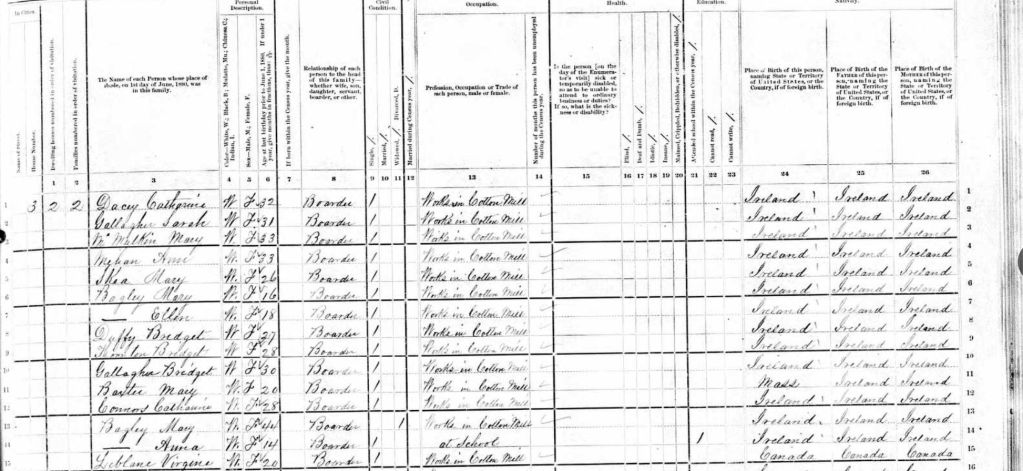 In Cities.
Personal Description.
Civil Condition.
Occupation.
Health.
Education.
Nativity.
Name of Street.
House Number.
Dwelling houses numbered in order of visitation.
Families numbered in order of visitation.
The Name of each Person whose place of abode, on 1st day of June, 1880, was in this family.
Color—White, W.; Black, B.; Mulatto, Mu.; Chinese, C.; Indian, I.
Sex—Male, M.; Female, F.
Age at last birthday prior to June 1, 1880. If under 1 year, give months in fractions, thus:
If born within the Census year, give the month.
Relationship of each person to the head of this family—whether wife, son, daughter, servant, boarder, or other.
Single, /
Married, /
Widowed, / Divorced, D.
Married during Census year, /
Profession, Occupation or Trade of each person, male or female.
Number of months this person has been unemployed during the Census year.
Is the person [on the day of the Enumerator's visit] sick or temporarily disabled, so as to be unable to attend to ordinary business or duties? If so, what is the sickness or disability?
Blind, /
Deaf and Dumb, /
Idiotic, /
Insane, /
Maimed, Crippled, Bedridden, or otherwise disabled, /
Attended school within the Census year, /
Cannot read, /
Cannot write, /
Place of Birth of this person, naming State or Territory of United States, or the Country, if of foreign birth.
Place of Birth of the FATHER of this person, naming the State or Territory of United States, or the Country, if of foreign birth.
Place of Birth of the MOTHER of this person, naming the State or Territory of United States, or the Country, if of foreign birth.
1 2 3 4 5 6 7 8 9 10 11 12 13 14 15 16 17 18 19 20 21 22 23 24 25 26
1 3 2 2 Dacey Catharine W F 32 Boarder 1 Works in Cotton Mill Ireland Ireland Ireland 1
2 Gallagher Sarah W F 31 Boarder 1 Works in Cotton Mill Ireland Ireland Ireland 2
3 Mary W F 33 Boarder 1 Works in Cotton Mill Ireland Ireland Ireland 3
4 Ann W F 33 Boarder 1 Works in Cotton Mill Ireland Ireland Ireland 4
5 Shea Mary W F 26 Boarder 1 Works in Cotton Mill Ireland Ireland Ireland 5
6 Bagley Mary W F 16 Boarder 1 Works in Cotton Mill Ireland Ireland Ireland 6
7 — Ellen W F 18 Boarder 1 Works in Cotton Mill Ireland Ireland Ireland 7
8 Duffy Bridget W F 27 Boarder 1 Works in Cotton Mill Ireland Ireland Ireland 8
9 Bridget W F 28 Boarder 1 Works in Cotton Mill Ireland Ireland Ireland 9
10 Gallagher Bridget W F 30 Boarder 1 Works in Cotton Mill Ireland Ireland Ireland 10
11 Mary W F 20 Boarder 1 Works in Cotton Mill Mass Ireland Ireland 11
12 Connors Catharine W F 28 Boarder 1 Works in Cotton Mill Ireland Ireland Ireland 12
13 Bagley Mary W F 44 Boarder 1 Works in Cotton Mill Ireland Ireland Ireland 13
14 Anna W F 14 Boarder 1 at School 1 Ireland Ireland Ireland 14
15 Leblanc Virgine W F 20 Boarder 1 Works in Cotton Mill Canada Canada Canada 15
16